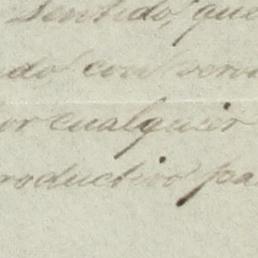 Sentido, que
do con
or cualquier
roductivo pa